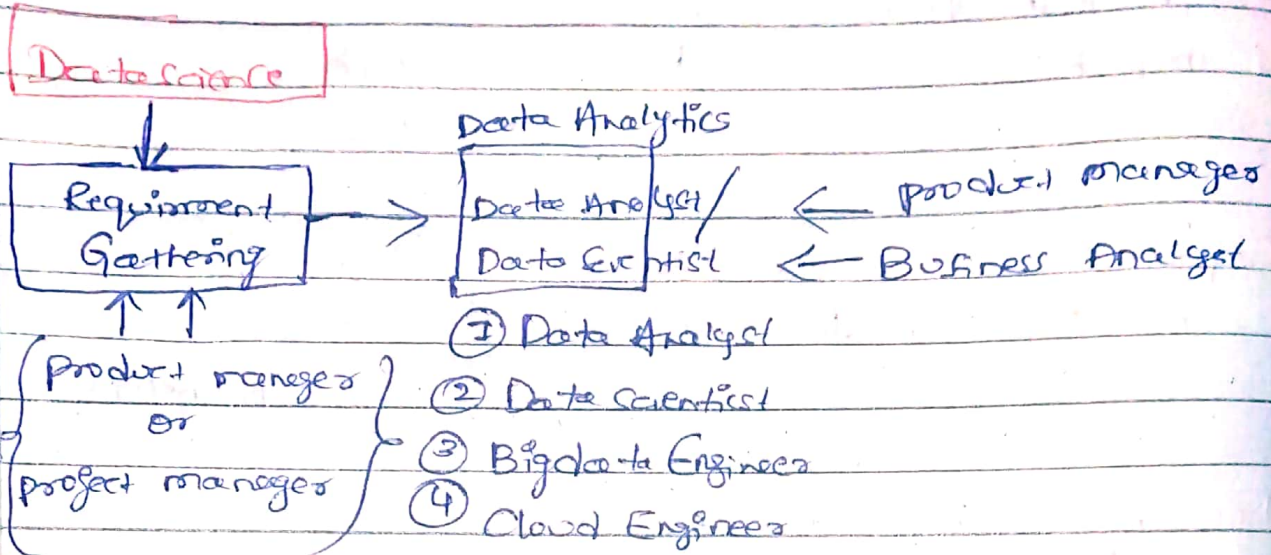 Data Science
Data Analytics
Requirment
Gathering
Data Analyst/
Data Scientist
product manager
Business Analyst
product manager
or
project manager
① Data Analyst
② Data Scientist
③ Bigdata Engineer
④ Cloud Engineer